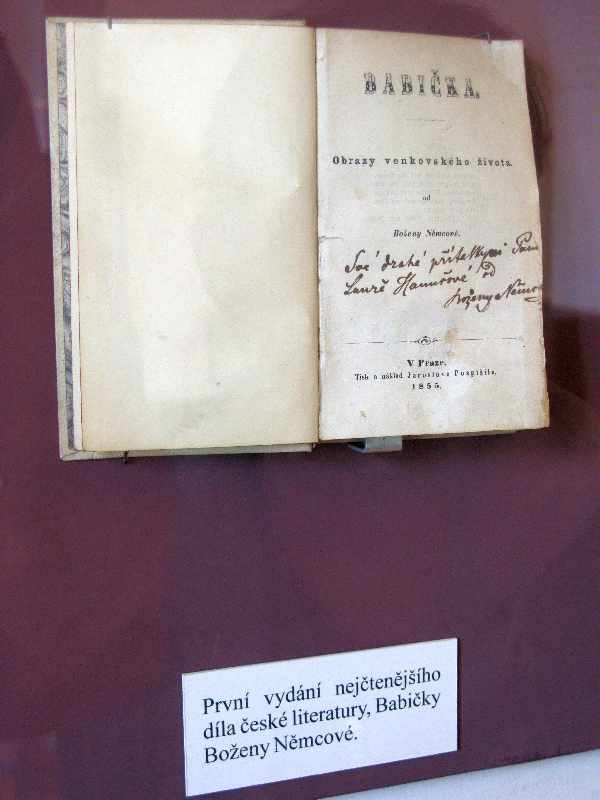 BABIČKA.
Obrazy venkovského života.
od
Boženy Němcové.
Své drahé přítelkyni Paní
Lauře Hanušové od
Boženy Němco
V Praze.
Tisk a náklad Jaroslava Pospíšila.
1855.
První vydání nejčtenějšího
díla české literatury, Babičky
Boženy Němcové.